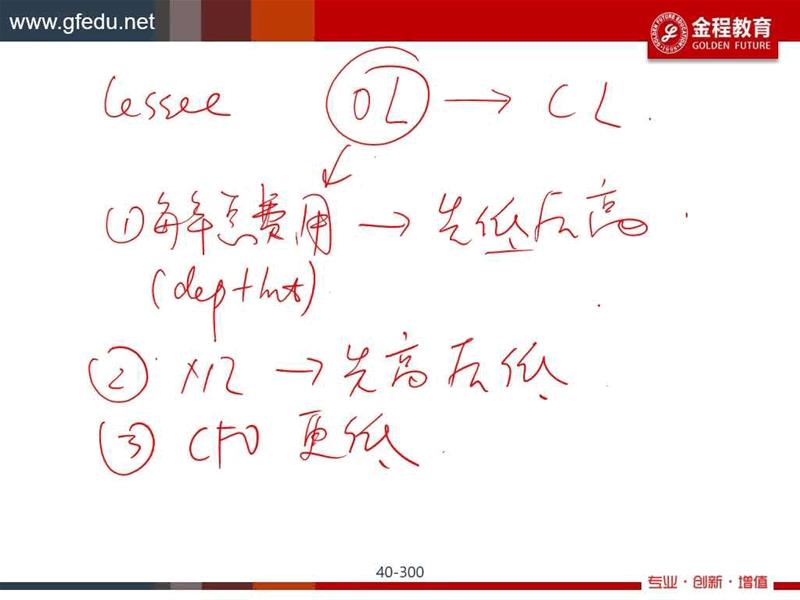 www.gfedu.net
金程教育
GOLDEN FUTURE
lessee OL → CL.
①每年总费用 → 先低后高.
(dep+Int)
② NI → 先高后低.
③ CFO 更低.
40-300
专业·创新·增值